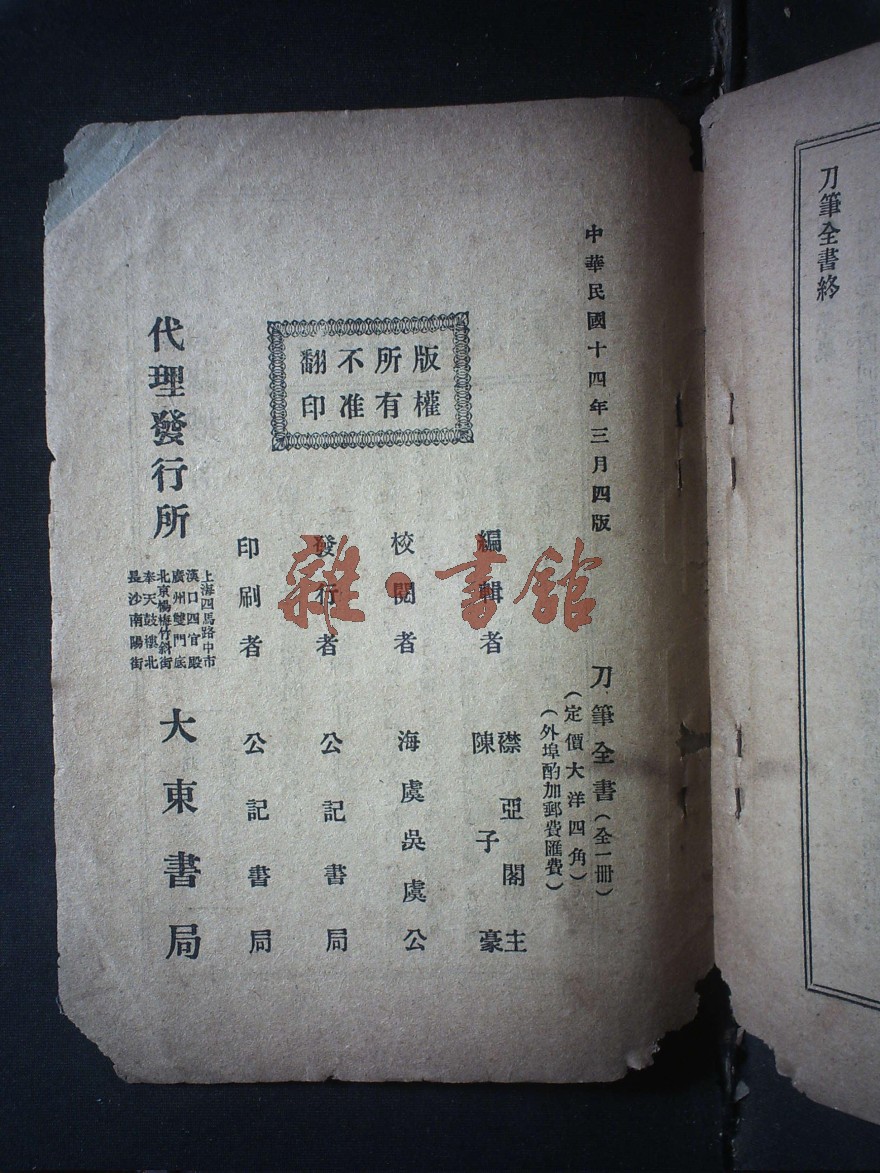 刀筆全書終
中華民國十四年三月四版
刀筆全書(全一冊)
(定價大洋四角)
(外埠酌加郵費匯費)
版權所有不准翻印
編輯者
襟亞閣主
陳子豪
校閱者 海虞吳虞公
發行者 公記書局
印刷者 公記書局
上海四馬路中市
漢口四官殿
廣州雙門底
北京楊梅竹斜街
奉天鼓樓北
長沙南陽街
代理發行所 大東書局
雜·書館